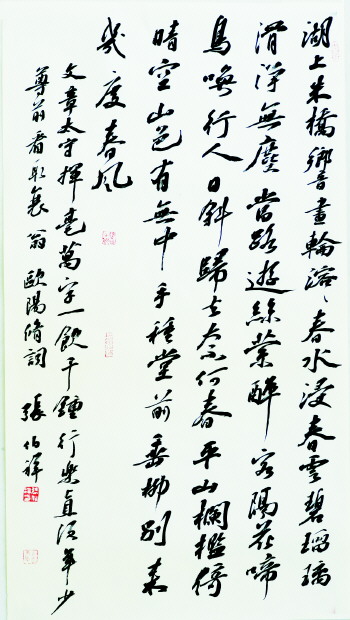 湖上朱橋響畫輪溶〻春水浸春雲碧瑠璃
滑淨無塵當路遊絲縈醉客隔花啼
鳥喚行人日斜歸去奈何春平山欄檻倚
晴空山色有無中手種堂前垂柳別來
幾度春風
文章太守揮毫萬字一飲千鍾行樂直須年少
尊前看取衰翁 歐陽脩詞 張伯祥